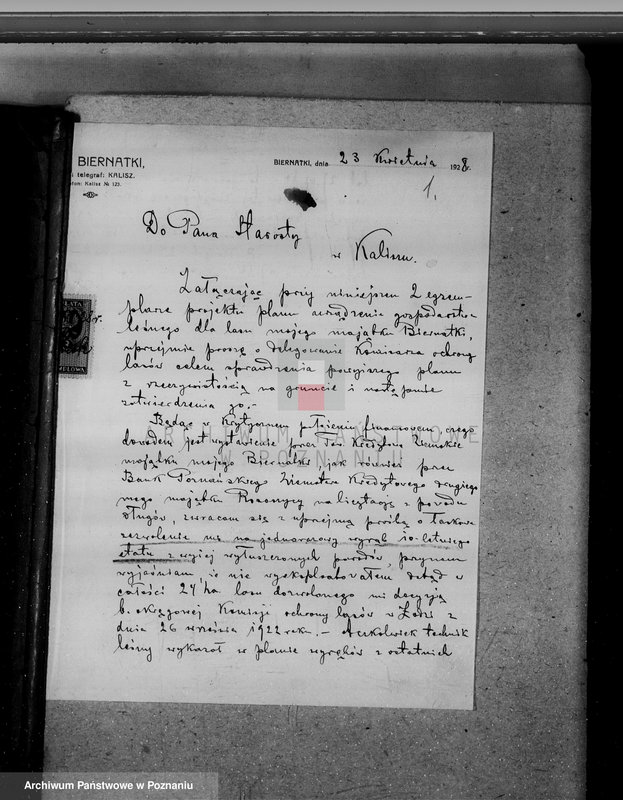 BIERNATKI,
i telegraf: KALISZ.
Kalisz № 123.
BIERNATKI, dnia 23 Kwietnia 1928 r.
1.
Do Pana Starosty
w Kaliszu.
Załączając przy niniejszem 2 egzem-
plarze projektu planu urządzenia gospodarstwa
leśnego dla lasu mojego majątku Biernatki,
uprzejmie proszę o delegowanie Komisarza ochrony
lasów celem sprawdzenia powyższego planu
z rzeczywistością na gruncie i nastąpienie
zatwierdzenia go.-
Będąc w krytycznem położeniu finansowem czego
dowodem jest wystawienie przez Tow. Kredytowe Ziemskie
majątku mojego Biernatki, jak również przez
Bank Poznańskiego Ziemstwa Kredytowego drugiego
mego majątku na licytację z powodu
długów, zwracam się z uprzejmą prośbą o łaskawe
zezwolenie mi na jednorazowy wyrąb 10-letniego
etatu z wyżej wyłuszczonych powodów, przyczem
wyjaśniam, iż nie wyeksploatowałem dotąd w
całości 24 ha lasu dozwolonego mi decyzją
b. okręgowej Komisji ochrony lasów w Łodzi z
dnia 26 września 1922 roku.- Aczkolwiek technik
leśny wykazał w planie wyrębów z ostatnich
ARCHIWUM PAŃSTWOWE
W POZNANIU
Archiwum Państwowe w Poznaniu